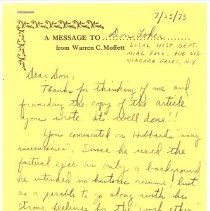 7/25/73
A MESSAGE TO Don Loker
from Warren C. Moffett
LOCAL HIST. DEPT.
NIAG. FALLS PUB LIB
NIAGARA FALLS, N.Y.
Dear Don,
Thanks for thinking of me and
forwarding the copy of the article
you wrote. It's well done!!
You commented on Hubbard's "many
inaccuracies". Since he used the
factual eras as only a background
he intended no historic
but
as a possible to go along with his
strong feelings for the "work ethic"